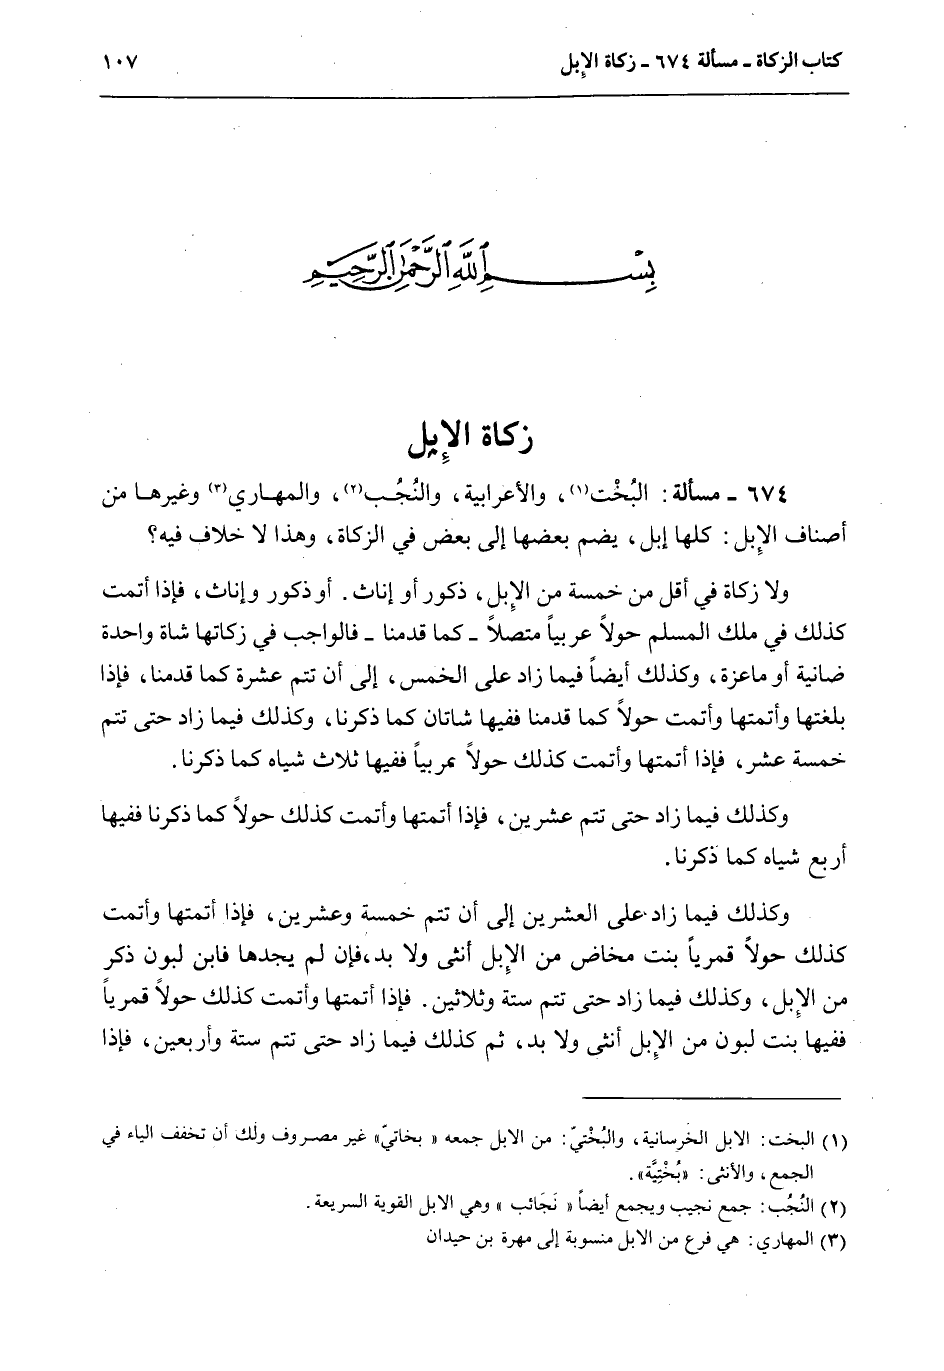 كتاب الزكاة ـ مسألة ٦٧٤ ـ زكاة الإِبل ١٠٧
بِسْمِ ٱللَّهِ ٱلرَّحْمَٰنِ ٱلرَّحِيمِ
زكاة الإِبل
٦٧٤ ـ مسألة: البُخْت(١)، والأعرابية، والنُجُب(٢)، والمهاري(٣) وغيرها من
أصناف الإِبل: كلها إبل، يضم بعضها إلى بعض في الزكاة، وهذا لا خلاف فيه؟
ولا زكاة في أقل من خمسة من الإِبل، ذكور أو إناث. أو ذكور وإناث، فإذا أتمت
كذلك في ملك المسلم حولاً عربياً متصلاً ـ كما قدمنا ـ فالواجب في زكاتها شاة واحدة
ضانية أو ماعزة، وكذلك أيضاً فيما زاد على الخمس، إلى أن تتم عشرة كما قدمنا، فإذا
بلغتها وأتمتها وأتمت حولاً كما قدمنا ففيها شاتان كما ذكرنا، وكذلك فيما زاد حتى تتم
خمسة عشر، فإذا أتمتها وأتمت كذلك حولاً عربياً ففيها ثلاث شياه كما ذكرنا.
وكذلك فيما زاد حتى تتم عشرين، فإذا أتمتها وأتمت كذلك حولاً كما ذكرنا ففيها
أربع شياه كما ذكرنا.
وكذلك فيما زاد على العشرين إلى أن تتم خمسة وعشرين، فإذا أتمتها وأتمت
كذلك حولاً قمرياً بنت مخاض من الإِبل أنثى ولا بد،فإن لم يجدها فابن لبون ذكر
من الإِبل، وكذلك فيما زاد حتى تتم ستة وثلاثين. فإذا أتمتها وأتمت كذلك حولاً قمرياً
ففيها بنت لبون من الإِبل أنثى ولا بد، ثم كذلك فيما زاد حتى تتم ستة وأربعين، فإذا
(١) البخت: الابل الخرسانية، والبُخْتيّ: من الابل جمعه « بخاتيّ» غير مصروف ولك أن تخفف الياء في
الجمع، والأنثى: «بُخْتِيَّة».
(٢) النُجُب: جمع نجيب ويجمع أيضاً « نَجَائب » وهي الابل القوية السريعة.
(٣) المهاري: هي فرع من الابل منسوبة إلى مهرة بن حيدان